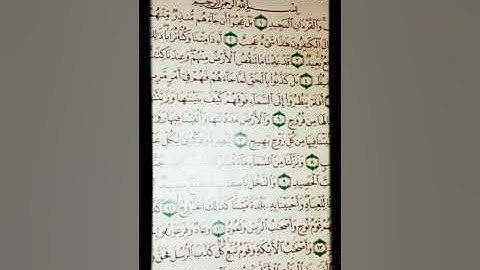 بِسْمِ اللَّهِ الرَّحْمَٰنِ الرَّحِيمِ
وَالْقُرْءَانِ الْمَجِيدِ ١ بَلْ عَجِبُوا أَن جَاءَهُم مُّنذِرٌ مِّنْهُمْ
الْكَٰفِرُونَ هَٰذَا شَيْءٌ عَجِيبٌ ٢ أَءِذَا مِتْنَا وَكُنَّا تُرَابًا ذَٰلِكَ
بَعِيدٌ ٣ قَدْ عَلِمْنَا مَا تَنقُصُ الْأَرْضُ مِنْهُمْ وَعِندَنَا
بَلْ كَذَّبُوا بِالْحَقِّ لَمَّا جَاءَهُمْ فَهُمْ فِي أَمْرٍ
أَفَلَمْ يَنظُرُوا إِلَى السَّمَاءِ فَوْقَهُمْ كَيْفَ بَنَيْنَٰهَا وَزَيَّنَّٰهَا
لَهَا مِن فُرُوجٍ ٦ وَالْأَرْضَ مَدَدْنَٰهَا وَأَلْقَيْنَا فِيهَا
فِيهَا مِن كُلِّ زَوْجٍ بَهِيجٍ ٧ تَبْصِرَةً وَذِكْرَىٰ لِكُلِّ
٨ وَنَزَّلْنَا مِنَ السَّمَاءِ
الْحَصِيدِ ٩ وَالنَّخْلَ بَاسِقَٰتٍ
لِّلْعِبَادِ وَأَحْيَيْنَا بِهِ بَلْدَةً مَّيْتًا كَذَٰلِكَ الْخُرُوجُ ١١
قَوْمُ نُوحٍ وَأَصْحَٰبُ الرَّسِّ وَثَمُودُ ١٢ وَعَادٌ وَفِرْعَوْنُ
١٣ وَأَصْحَٰبُ الْأَيْكَةِ وَقَوْمُ تُبَّعٍ كُلٌّ كَذَّبَ الرُّسُلَ فَحَقَّ